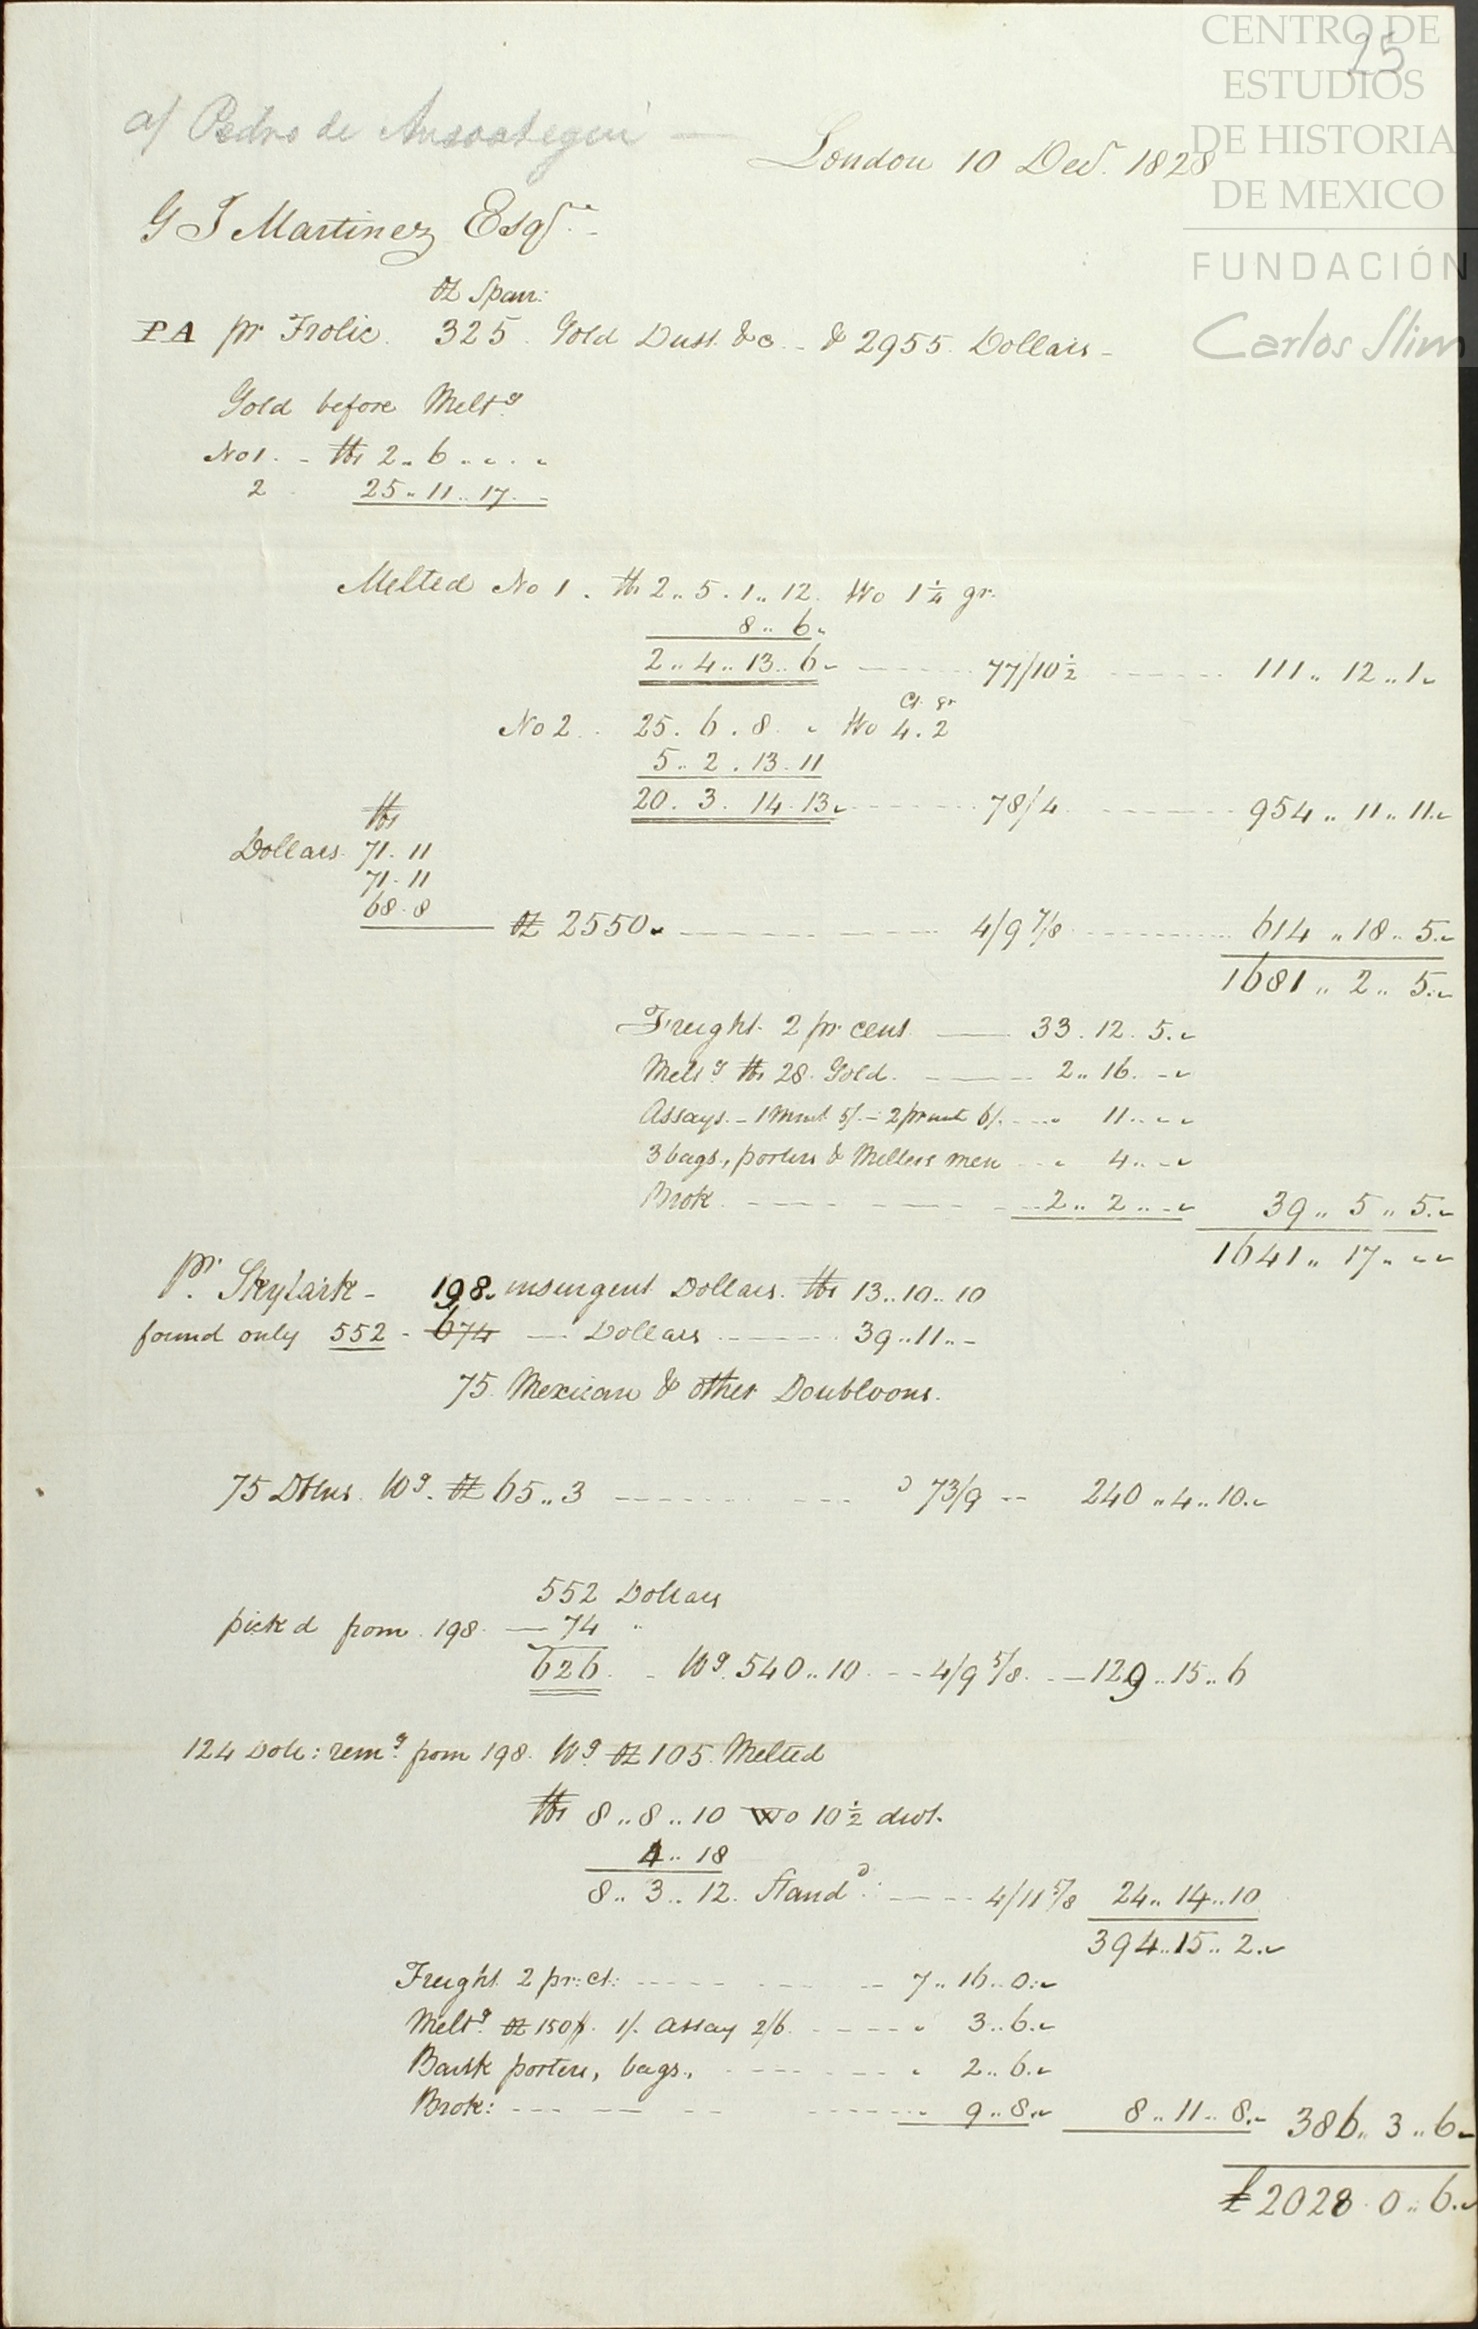 CENTRO DE
ESTUDIOS
DE HISTORIA
DE MEXICO
FUNDACIÓN
Carlos Slim
25
a/ Pedro de Ansoategui
London 10 Decr. 1828
G J Martinez Esqr.
oz Span:
PA pr Frolic. 325. Gold Dust &c - & 2955 Dollars -
Gold before Meltg
No 1. - lbs 2.. 6 .. . .
2 25.. 11.. 17. -
Melted No 1. lbs 2.. 5. 1.. 12. Wo 1 1/4 gr.
8.. 6.
2.. 4.. 13.. 6 - 77/10 1/2 111.. 12.. 1.
Ct gr
No 2. 25. 6. 8. . Wo 4. 2
5.. 2. 13. 11
20. 3. 14. 13. 78/4 954.. 11.. 11.
lbs
Dollars. 71. 11
71. 11
68. 8
oz 2550. 4/9 7/8 614.. 18.. 5.
1681.. 2.. 5.
Freight. 2 pr cent. 33. 12. 5.
Meltg lbs 28. Gold. 2.. 16. - .
Assays. - 1 Mint 5/. - 2 6/. 11.. - .
3 bags, porters & Melters men 4.. - .
Brok. 2.. 2.. - . 39.. 5.. 5.
1641.. 17.. - .
pr. Skylark - 198. insurgent Dollars. lbs 13.. 10.. 10
found only 552 - 674 Dollars 39.. 11.. -
75. Mexican & other Doubloons.
75 Dblns. Wg. oz 65.. 3 73/9 -- 240.. 4.. 10.
552 Dollars
pick'd from 198. 74 "
626. - Wg. 540.. 10. -- 4/9 5/8. - 129.. 15.. 6
124 Doll: remg. from 198. Wg. oz 105. Melted
lbs 8.. 8.. 10 Wo 10 1/2 dwt.
4.. 18
8.. 3.. 12. Standd. 4/11 5/8 24.. 14.. 10
394.. 15.. 2.
Freight 2 pr: ct: 7.. 16.. 0.
Meltg. oz 150 1/. assay 2/6. 3.. 6.
Bank porters, bags, 2.. 6.
Brok: 9.. 8. 8.. 11.. 8. 386.. 3.. 6.
£ 2028. 0.. 6.